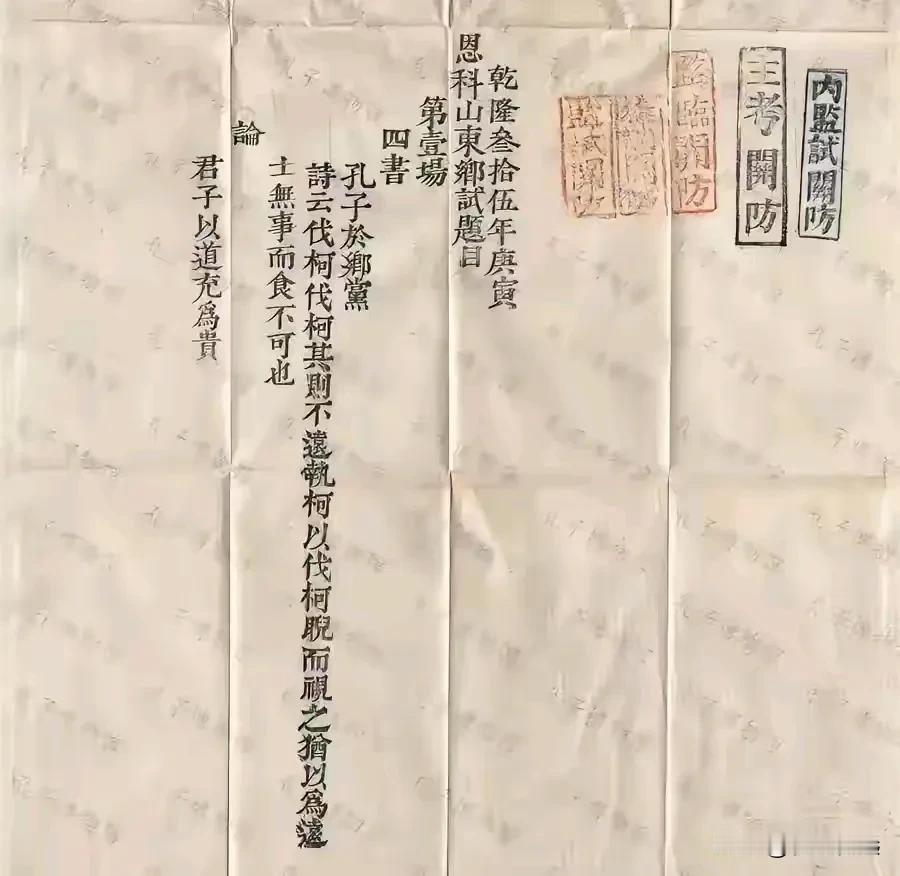 內監試關防
主考關防
監臨關防
乾隆叁拾伍年庚寅
恩科山東鄉試題目
第壹場
四書
孔子於鄉黨
詩云伐柯伐柯其則不遠執柯以伐柯睨而視之猶以為遠
士無事而食不可也
論
君子以道充為貴